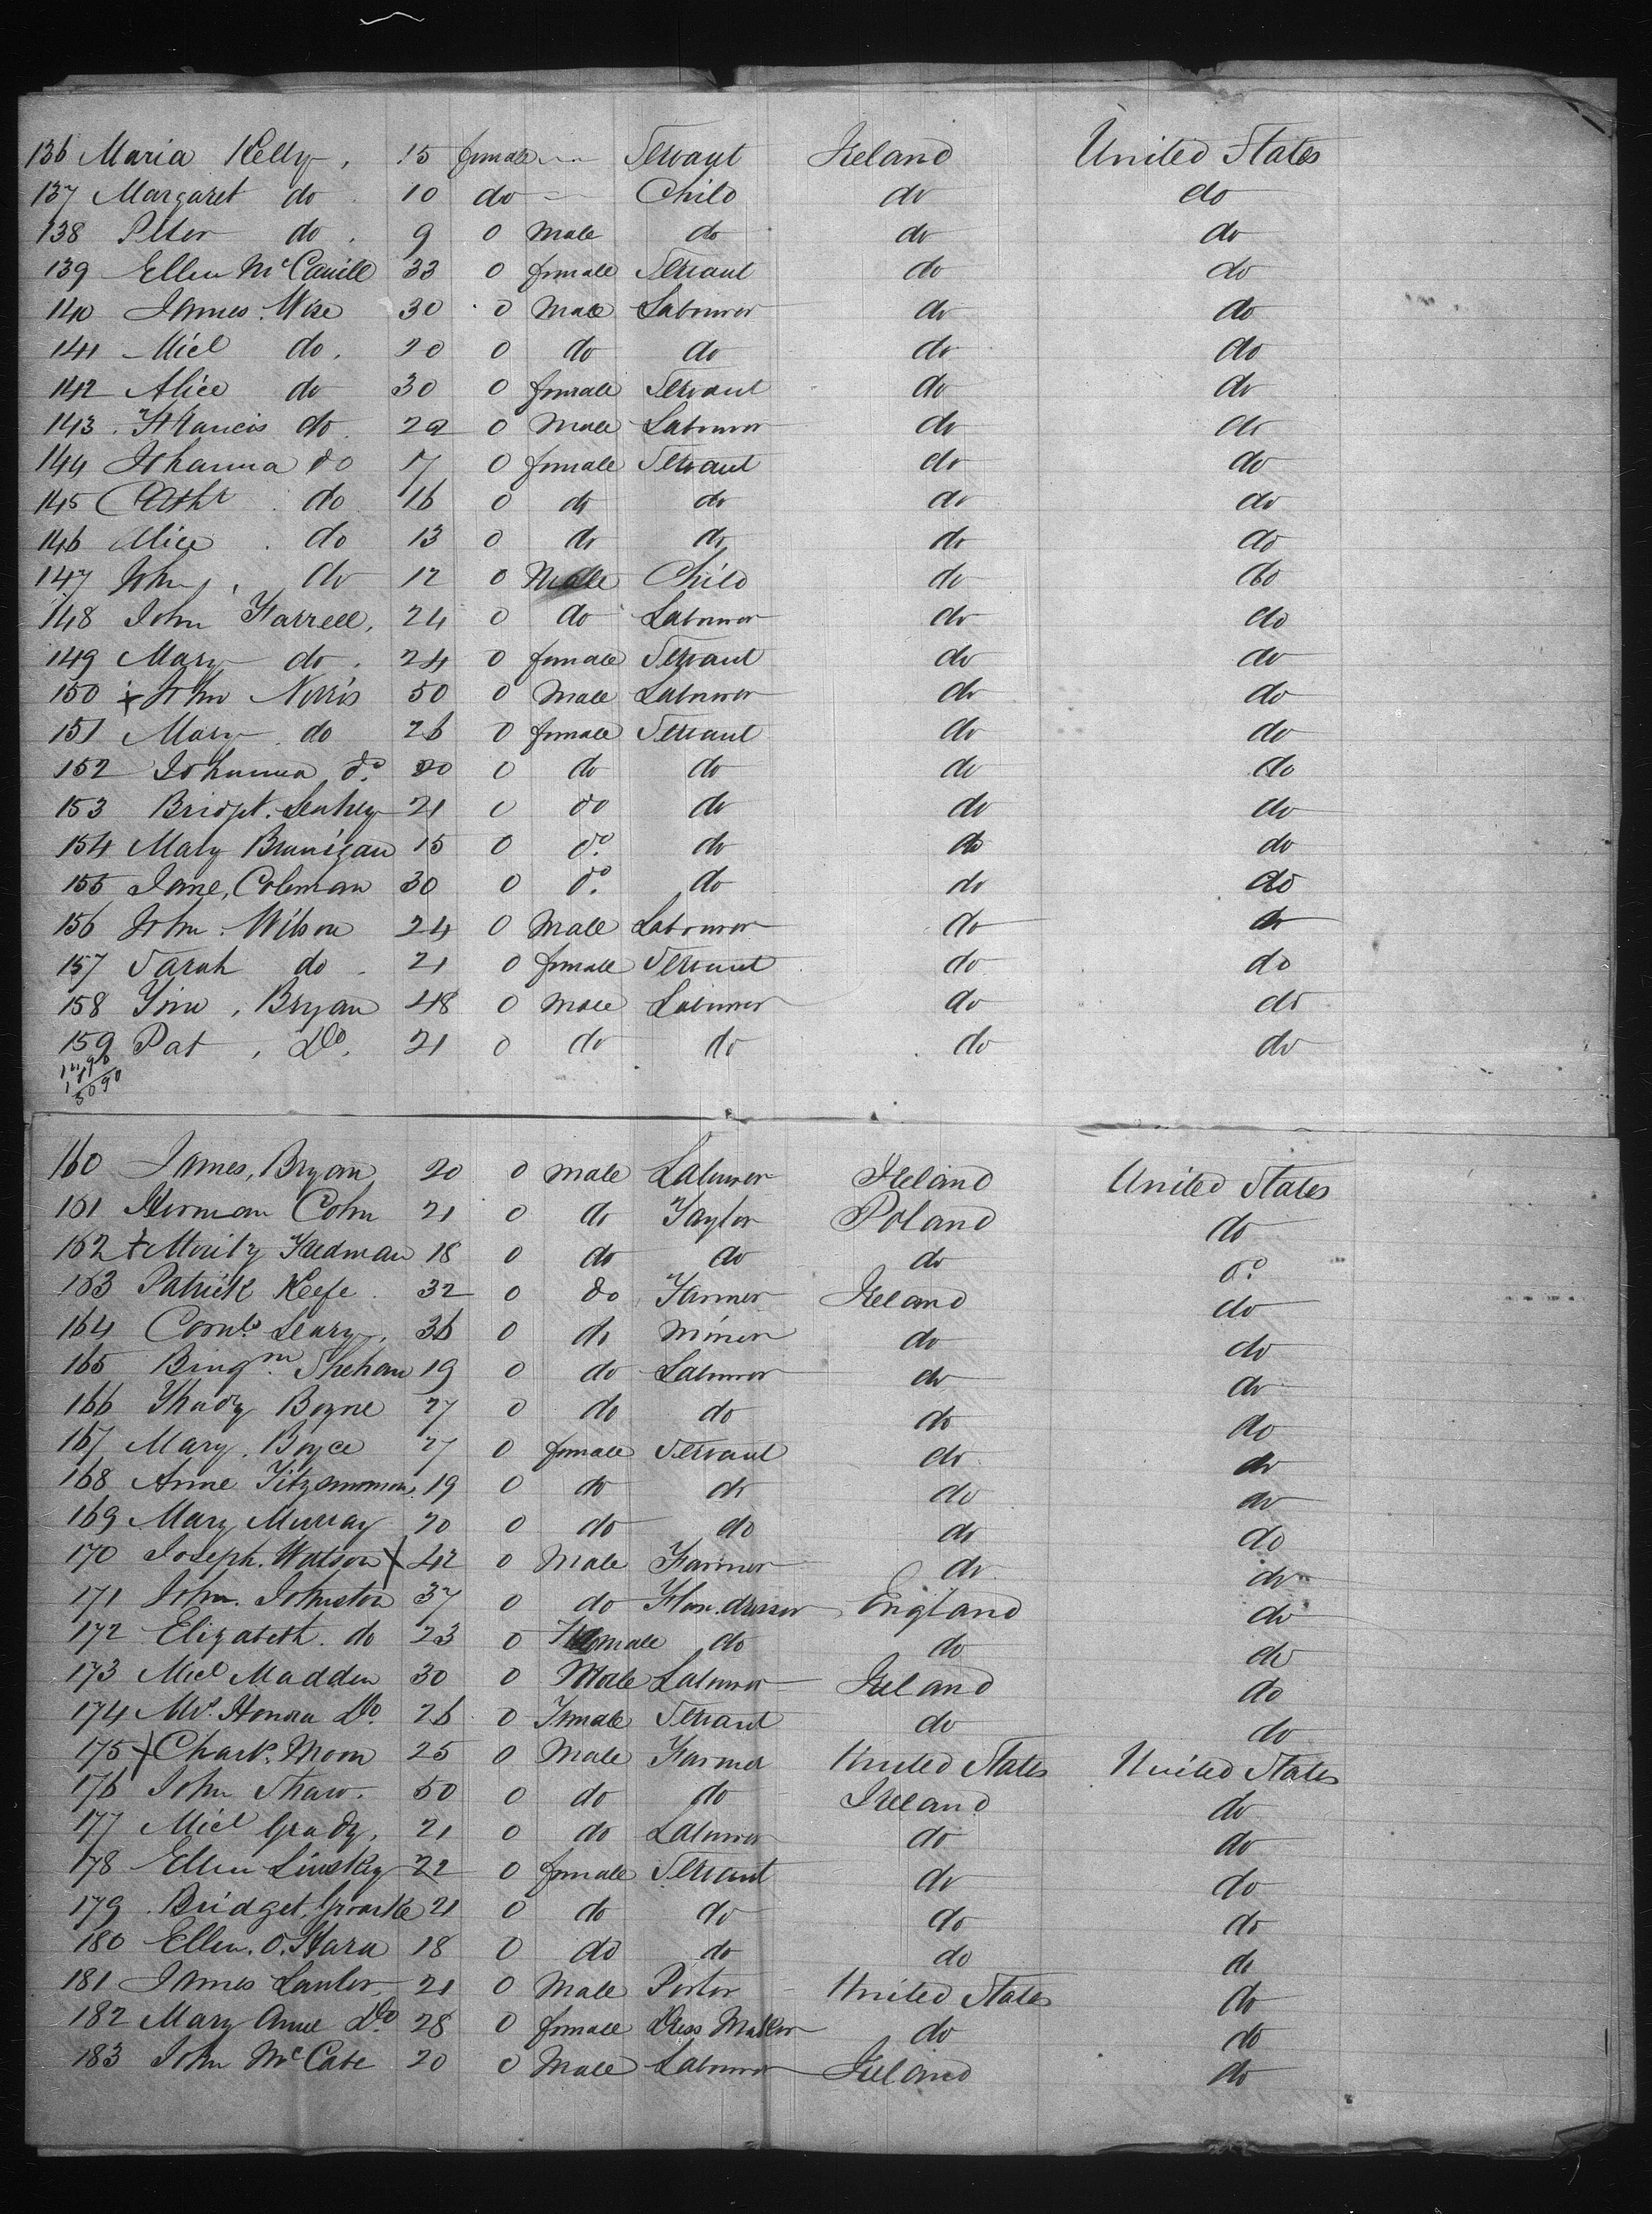 136 Maria Kelly 15 female Servant Ireland United States
137 Margaret do 10 do Child do do
138 Peter do 9 0 Male do do do
139 Ellen McCavill 33 0 female Servant do do
140 James Wise 30 0 Male Labourer do do
141 Micl do 20 0 do do do do
142 Alice do 30 0 female Servant do do
143 Francis do 22 0 Male Labourer do do
144 Johanna do 17 0 female Servant do do
145 Cathr do 16 0 do do do do
146 Alice do 13 0 do do do do
147 John do 12 0 Male Child do do
148 John Farrell 24 0 do Labourer do do
149 Mary do 24 0 female Servant do do
150 x John Norris 50 0 Male Labourer do do
151 Mary do 26 0 female Servant do do
152 Johanna do 20 0 do do do do
153 Bridgt. 21 0 do do do do
154 Mary Brunigan 15 0 do do do do
155 Jane Coleman 30 0 do do do do
156 John Wilson 24 0 Male Labourer do do
157 Sarah do 21 0 female Servant do do
158 Tim Bryan 48 0 Male Labourer do do
159 Pat Do 21 0 do do do do
160 James Bryan 20 0 male Labourer Ireland United States
161 Herman Cohn 21 0 do Taylor Poland do
162 x Moritz Fredman 18 0 do do do do
163 Patrick Keefe 32 0 do Farmer Ireland do
164 Cornls Leary 36 0 do Miner do do
165 Bingm. Shehan 19 0 do Labourer do do
166 Thady Boyne 27 0 do do do do
167 Mary Boyce 27 0 female Servant do do
168 Anne Fitzsimmon 19 0 do do do do
169 Mary Murray 20 0 do do do do
170 Joseph Watson x 42 0 Male Farmer do do
171 John Johnston 37 0 do dresser England do
172 Elizabeth do 23 0 Female do do do
173 Micl Madden 30 0 Male Labourer Ireland do
174 Mrs. Honora Do. 26 0 Female Servant do do
175 x Charls. Moon 25 0 Male Farmer United States United States
176 John Shaw 50 0 do do Ireland do
177 Micl Grady 21 0 do Labourer do do
178 Ellen Linskey 22 0 female Servant do do
179 Bridget 21 0 do do do do
180 Ellen O.Hara 18 0 do do do do
181 James Lawler 21 0 Male Porter United States do
182 Mary Anne Do 28 0 female Dress Maker do do
183 John McCabe 20 0 Male Labourer Ireland do